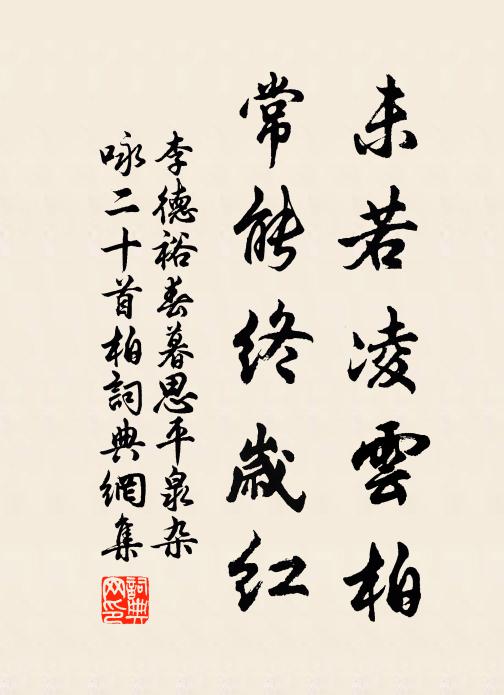 未若凌雲柏
常能終歲紅
李德裕春暮思平泉杂
咏二十首柏詞典網集
詞典网印